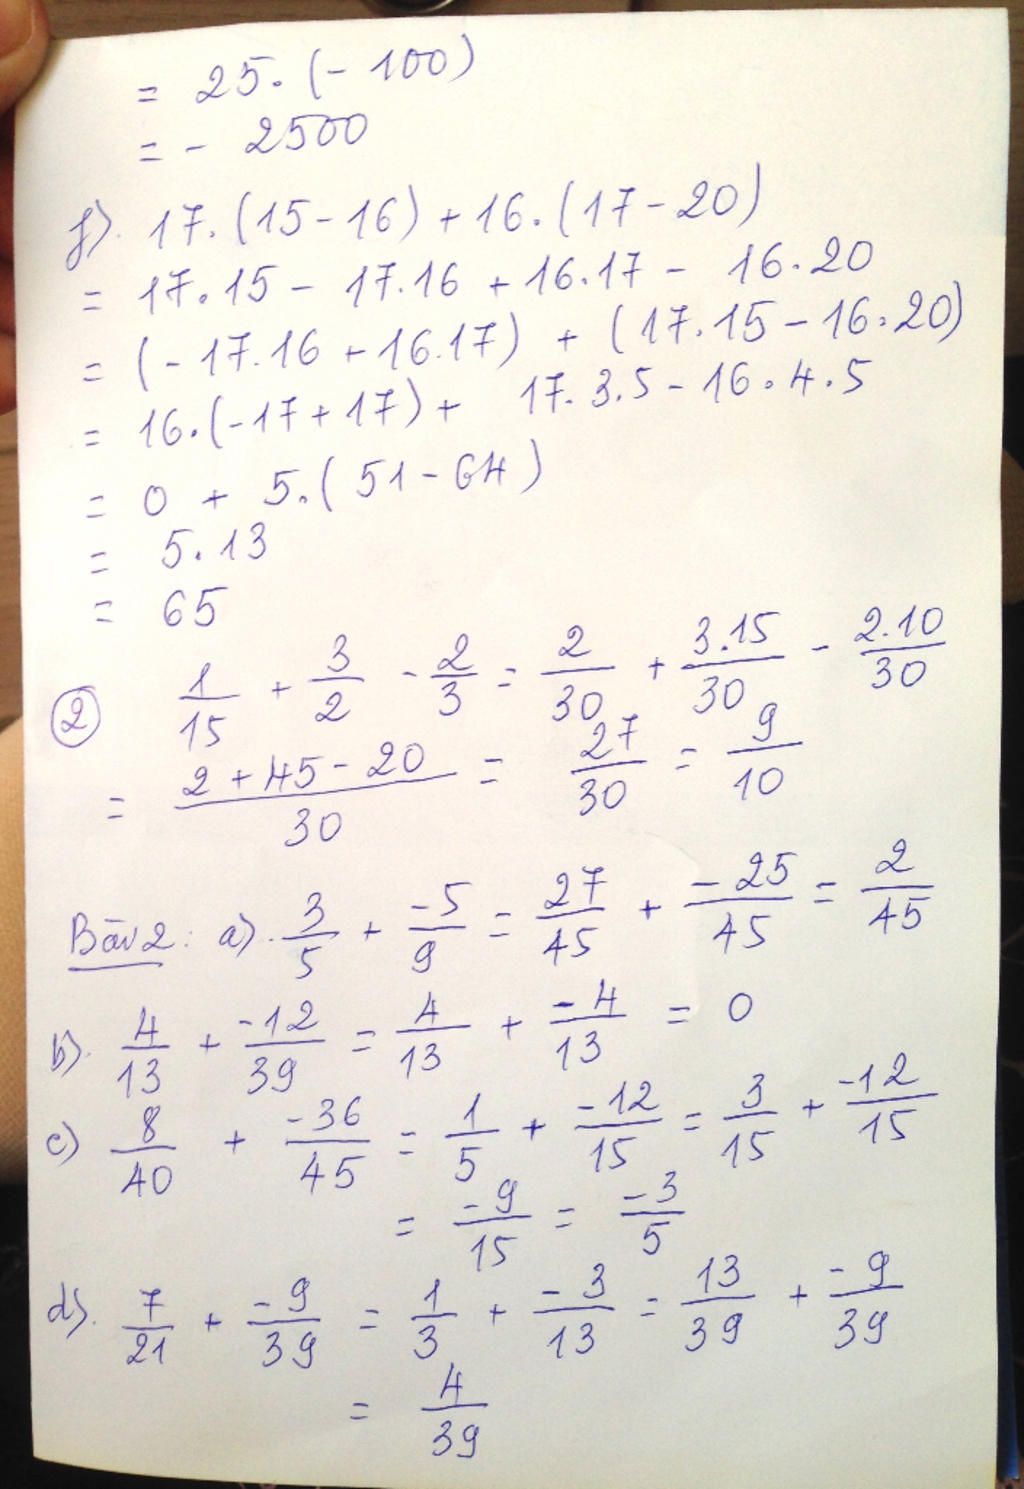 = 25. (- 100)
= - 2500
f). 17. (15 - 16) + 16. (17 - 20)
= 17.15 - 17.16 + 16.17 - 16.20
= (- 17.16 + 16.17) + (17.15 - 16.20)
= 16. (-17 + 17) + 17.3.5 - 16.4.5
= 0 + 5. (51 - 64)
= 5.13
= 65
② 1/15 + 3/2 - 2/3 = 2/30 + 3.15/30 - 2.10/30
= 2 + 45 - 20/30 = 27/30 = 9/10
Bài 2: a). 3/5 + -5/9 = 27/45 + -25/45 = 2/45
b). 4/13 + -12/39 = 4/13 + -4/13 = 0
c) 8/40 + -36/45 = 1/5 + -12/15 = 3/15 + -12/15
= -9/15 = -3/5
d). 7/21 + -9/39 = 1/3 + -3/13 = 13/39 + -9/39
= 4/39